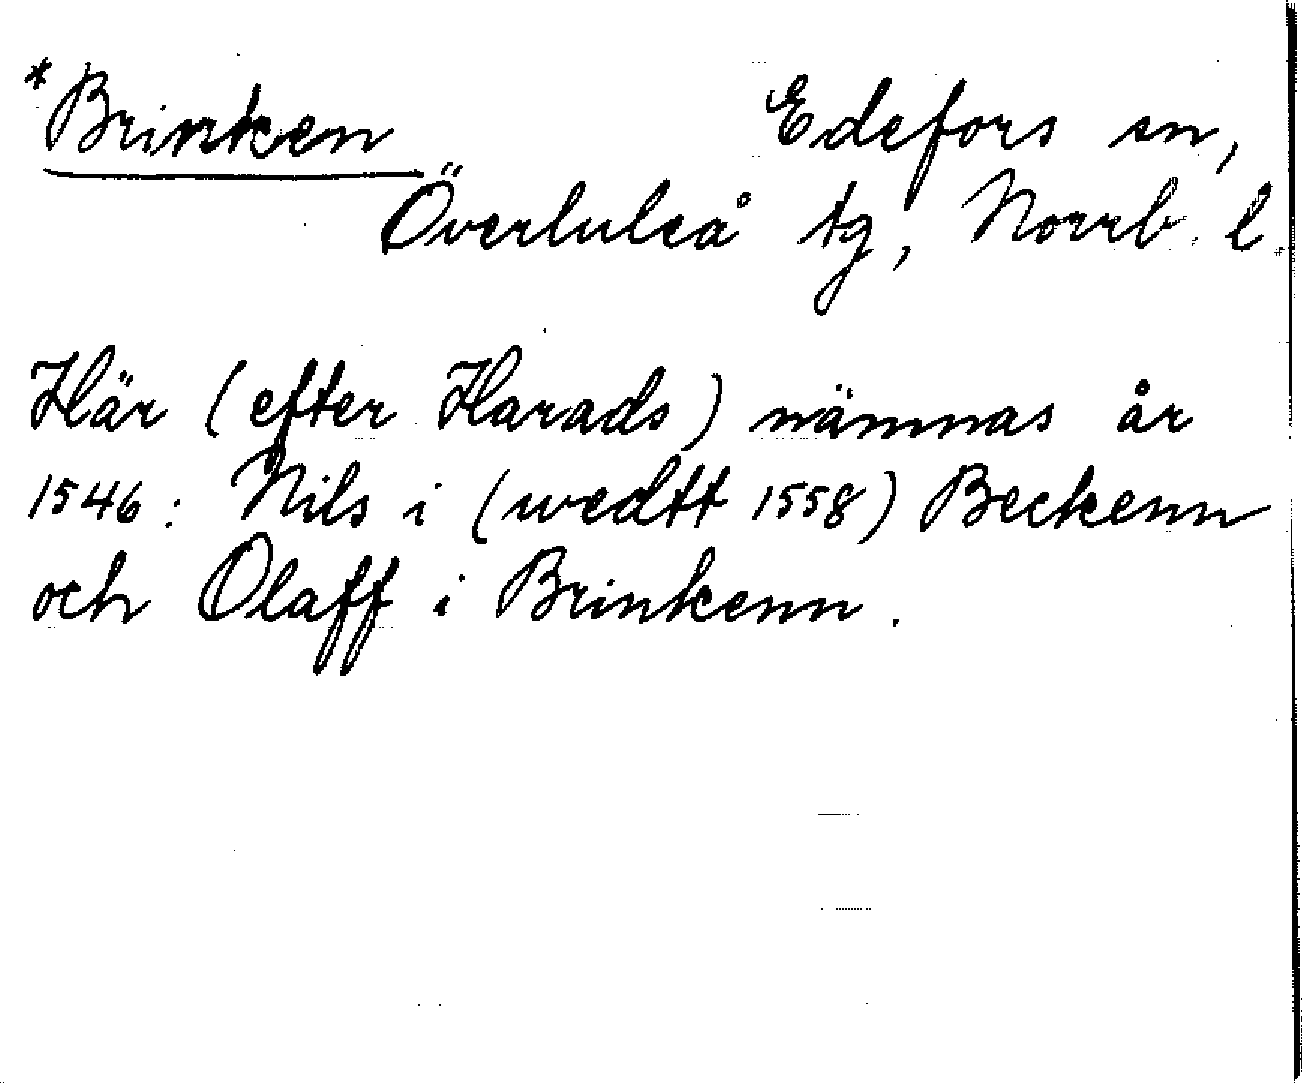 *Brinken Edefors sn,
Överluleå tg, Norrb. l.
Här (efter Harads) nämnas år
1546: Nils i (wedtt 1558) Beckenn
och Olaff i Brinkenn.